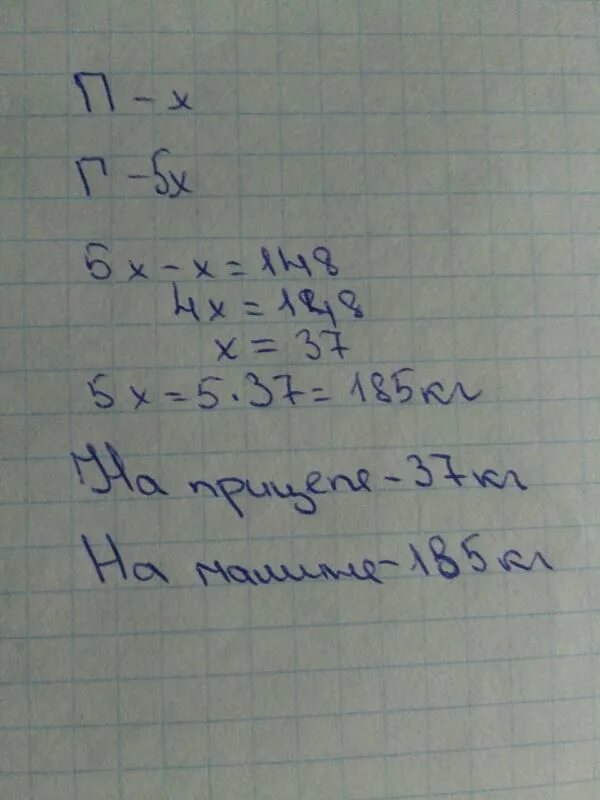 П - х
Г - 5х
5х - х = 148
4х = 148
х = 37
5х = 5·37 = 185кг
На прицепе - 37кг
На машине - 185кг